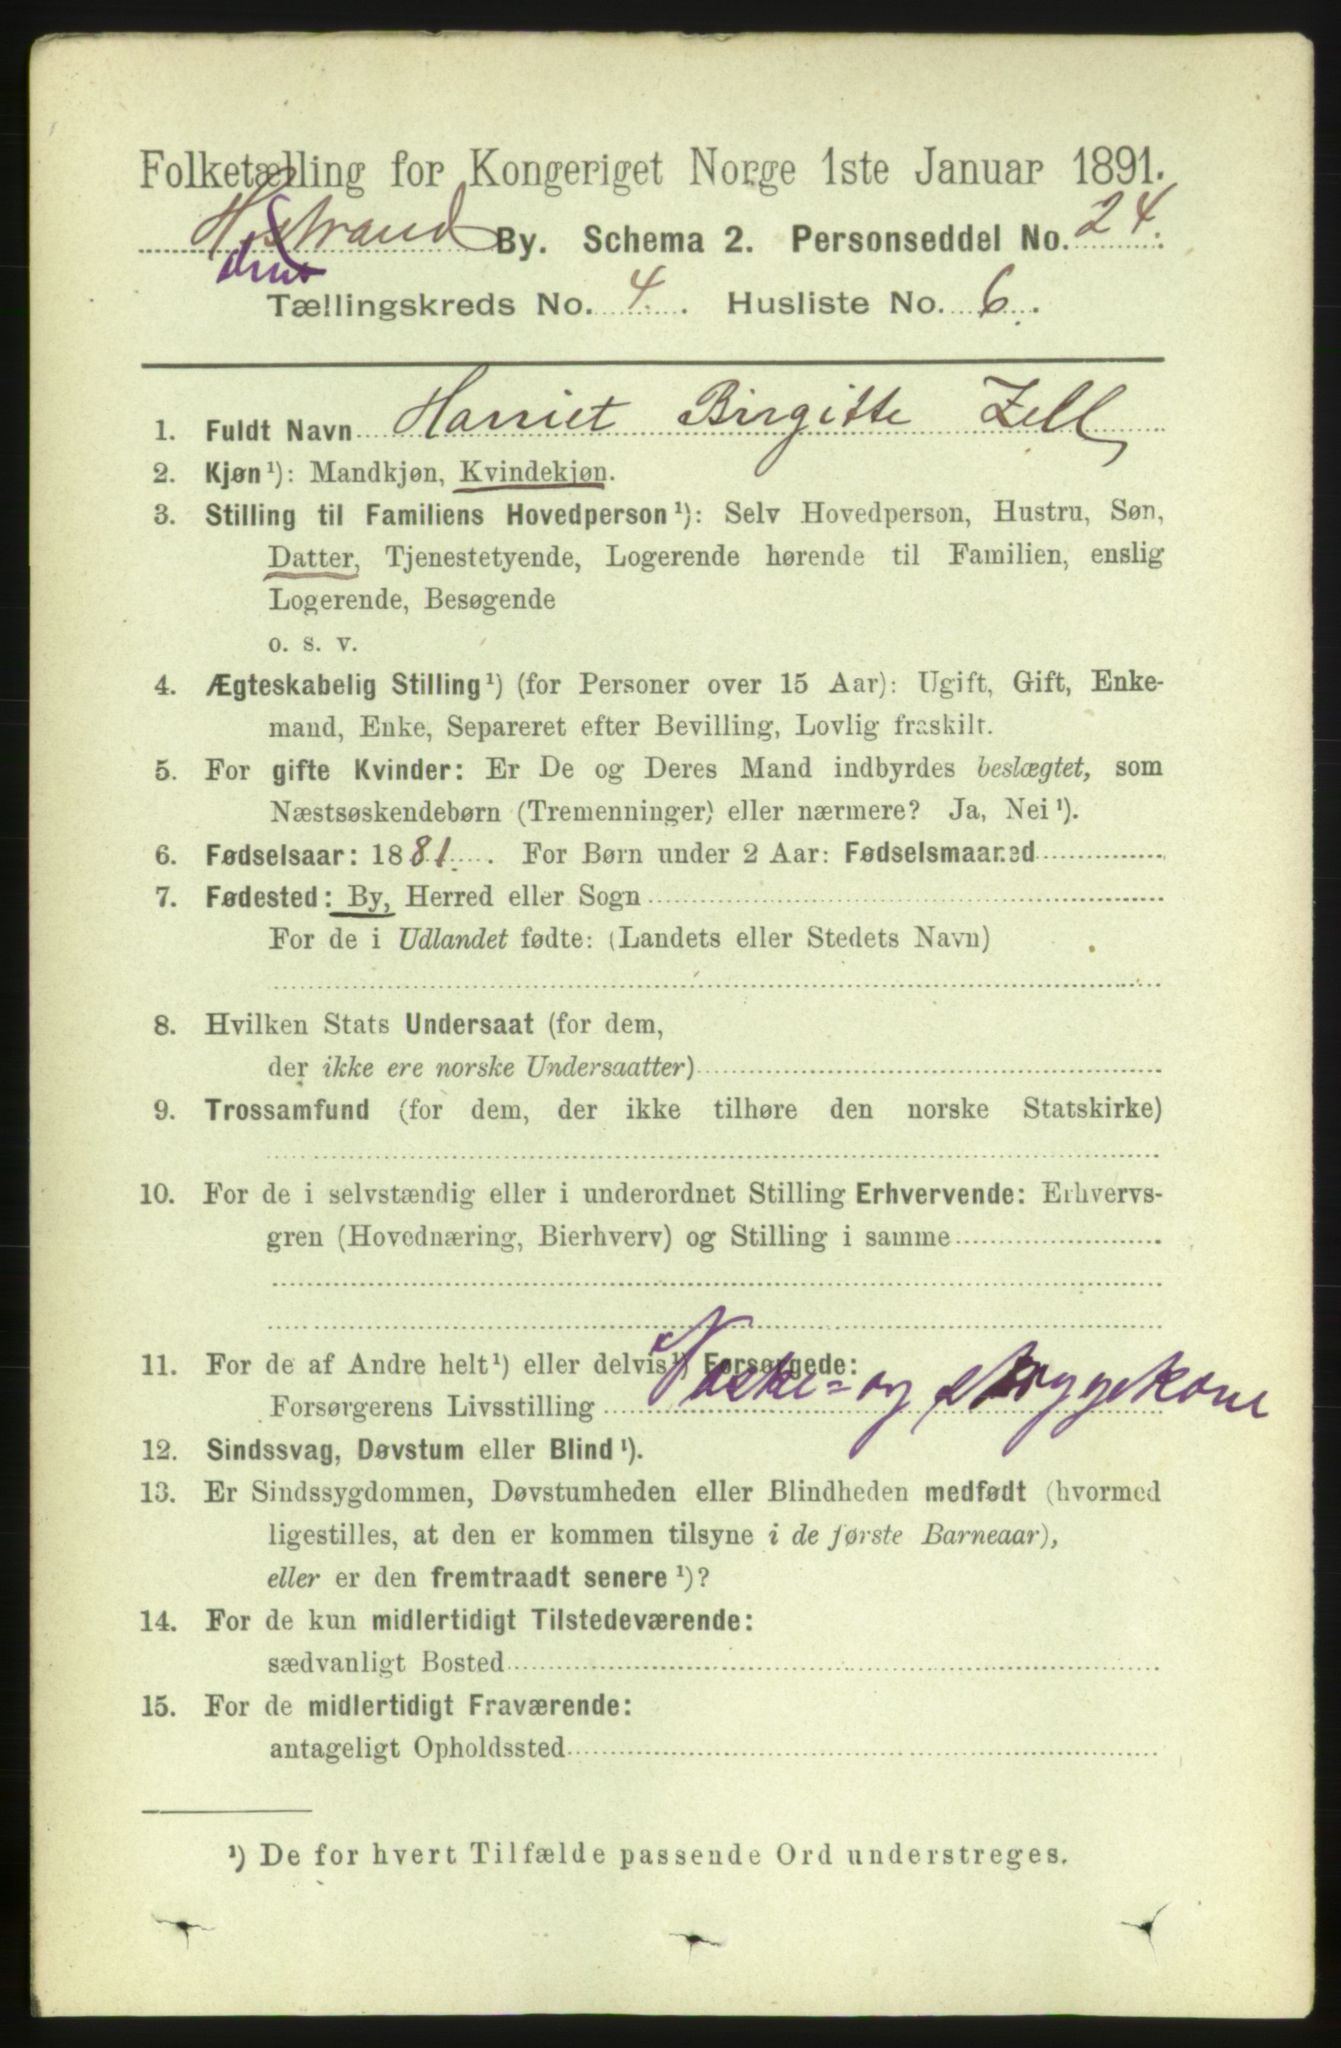 Folketælling for Kongeriget Norge 1ste Januar 1891.
H.strand By. Schema 2. Personseddel No. 24.
Tællingskreds No. 4. Husliste No. 6.
1. Fuldt Navn Harriet Birgitte Zell
2. Kjøn¹): Mandkjøn, Kvindekjøn.
3. Stilling til Familiens Hovedperson¹): Selv Hovedperson, Hustru, Søn,
Datter, Tjenestetyende, Logerende hørende til Familien, enslig
Logerende, Besøgende
o. s. v.
4. Ægteskabelig Stilling¹) (for Personer over 15 Aar): Ugift, Gift, Enke-
mand, Enke, Separeret efter Bevilling, Lovlig fraskilt.
5. For gifte Kvinder: Er De og Deres Mand indbyrdes beslægtet, som
Næstsøskendebørn (Tremenninger) eller nærmere? Ja, Nei¹).
6. Fødselsaar: 1881. For Børn under 2 Aar: Fødselsmaaned
7. Fødested: By, Herred eller Sogn
For de i Udlandet fødte: (Landets eller Stedets Navn)
8. Hvilken Stats Undersaat (for dem,
der ikke ere norske Undersaatter)
9. Trossamfund (for dem, der ikke tilhøre den norske Statskirke)
10. For de i selvstændig eller i underordnet Stilling Erhvervende: Erhvervs-
gren (Hovednæring, Bierhverv) og Stilling i samme
11. For de af Andre helt¹) eller delvis¹) Forsørgede:
Forsørgerens Livsstilling Vaske- og strygekone
12. Sindssvag, Døvstum eller Blind¹).
13. Er Sindssygdommen, Døvstumheden eller Blindheden medfødt (hvormed
ligestilles, at den er kommen tilsyne i de første Barneaar),
eller er den fremtraadt senere¹)?
14. For de kun midlertidigt Tilstedeværende:
sædvanligt Bosted
15. For de midlertidigt Fraværende:
antageligt Opholdssted
¹) De for hvert Tilfælde passende Ord understreges.